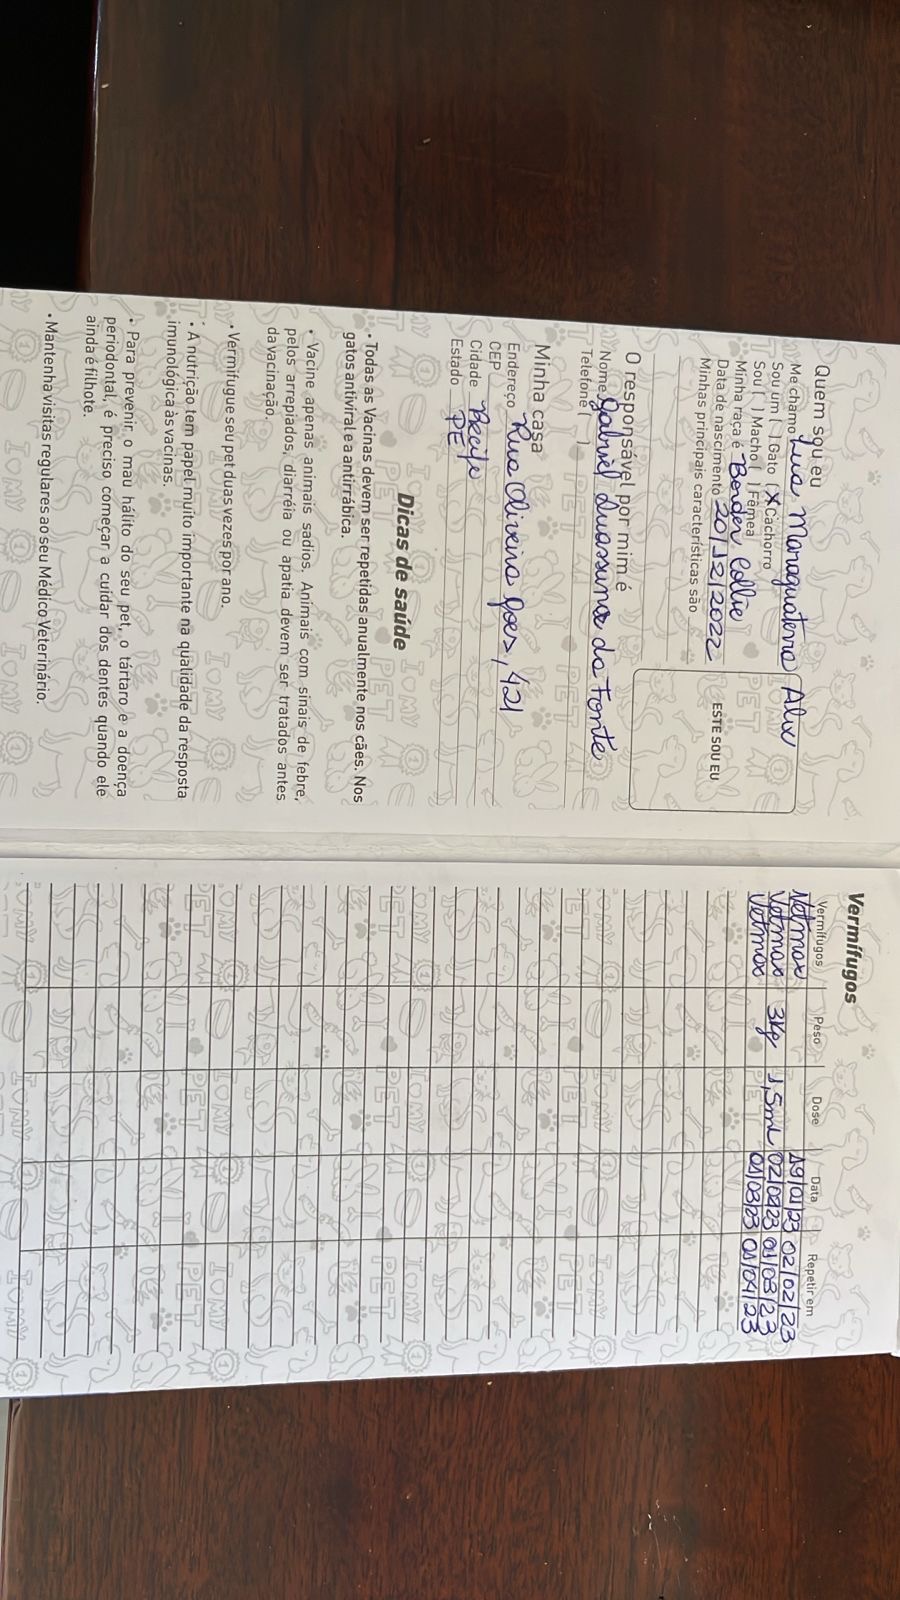 Quem sou eu
Me chamo Lua Maraguaterra Alux
Sou um ( ) Gato (X) Cachorro
Sou ( ) Macho ( ) Fêmea
Minha raça é Border Collie
Data de nascimento 20/12/2022
Minhas principais características são
ESTE SOU EU
O responsável por mim é
Nome Gabriel Suassuna da Fonte
Telefone ( )
Minha casa
Endereço Rua Oliveira Goes, 421
CEP
Cidade Recife
Estado PE
Dicas de saúde
• Todas as Vacinas devem ser repetidas anualmente nos cães. Nos
gatos antiviral e a antirrábica.
• Vacine apenas animais sadios. Animais com sinais de febre,
pelos arrepiados, diarréia ou apatia devem ser tratados antes
da vacinação.
• Vermifugue seu pet duas vezes por ano.
• A nutrição tem papel muito importante na qualidade da resposta
imunológica às vacinas.
• Para prevenir o mau hálito do seu pet, o tártaro e a doença
periodontal, é preciso começar a cuidar dos dentes quando ele
ainda é filhote.
• Mantenha visitas regulares ao seu Médico Veterinário.
Vermífugos
Vermífugos Peso Dose Data Repetir em
Vetmax 19/01/23 02/02/23
Vetmax 3Kg 1,5ml 02/02/23 01/03/23
Vetmax 01/03/23 01/04/23